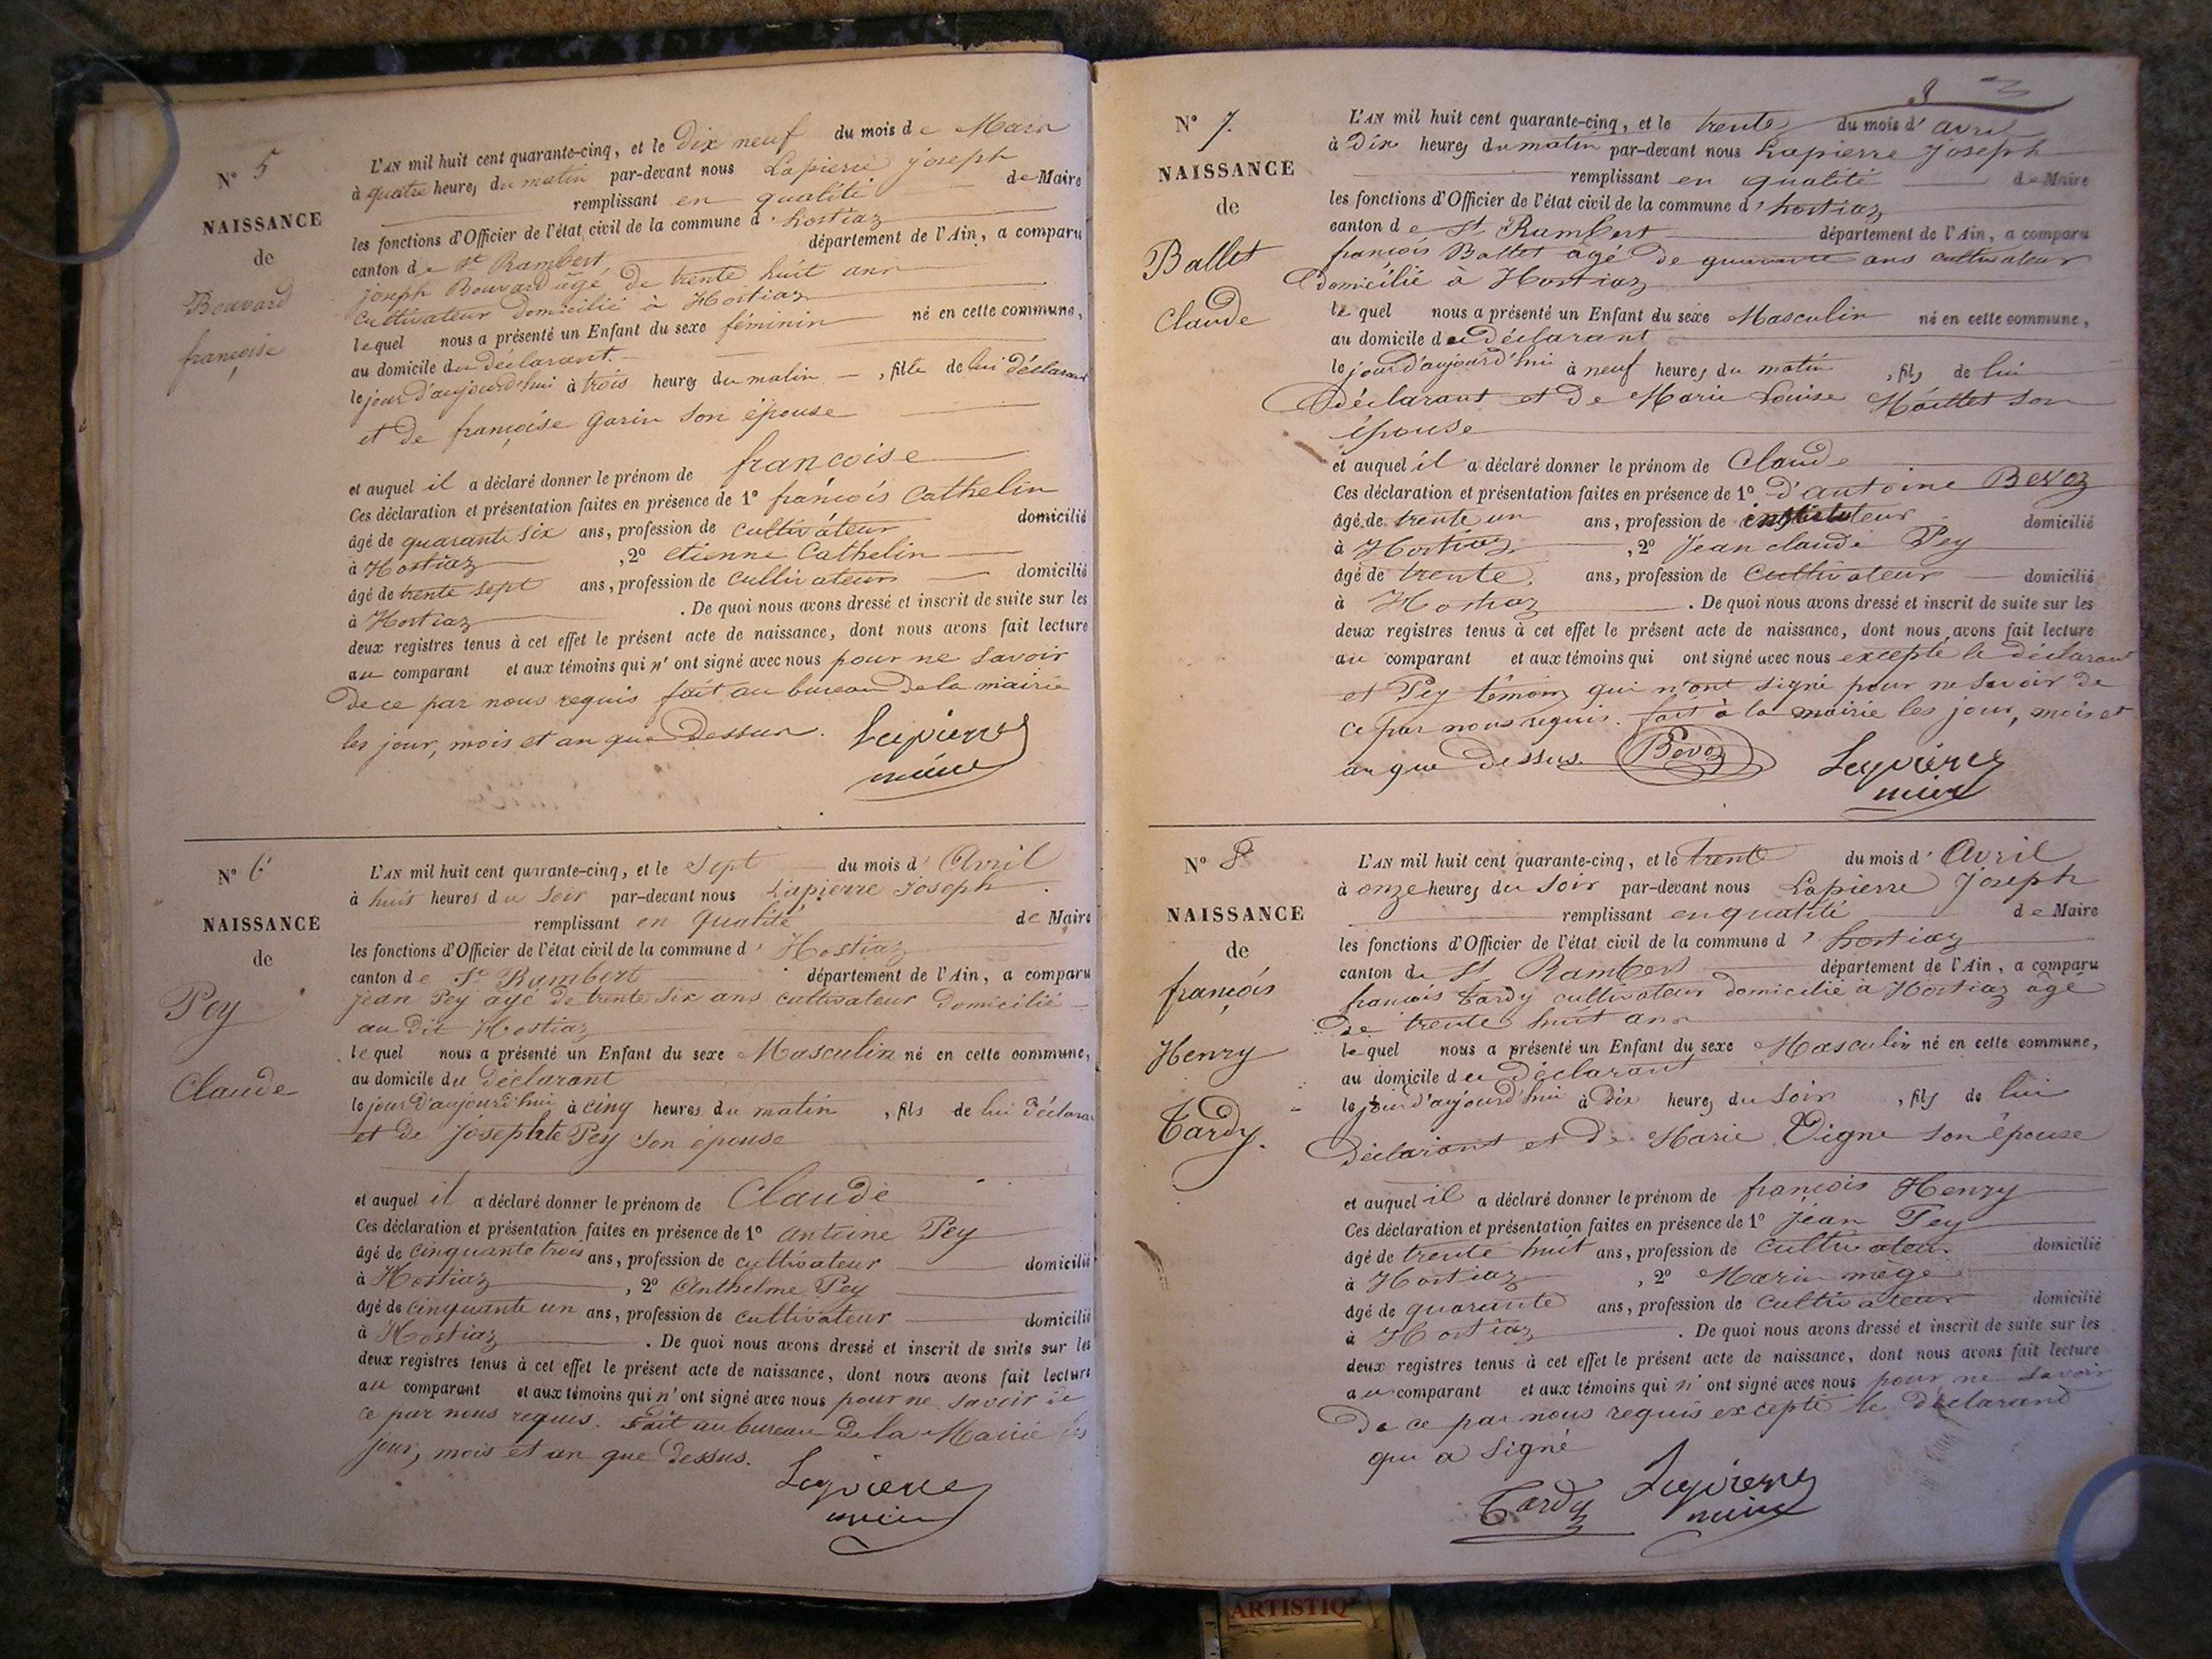 N° 5
NAISSANCE
de
Bouvard
françoise
L'AN mil huit cent quarante-cinq, et le Dix neuf du mois de Mars
à quatre heures du matin par-devant nous Lapierre joseph
remplissant en qualité de Maire
les fonctions d'Officier de l'état civil de la commune d' hostiaz
canton de St Rambert département de l'Ain, a comparu
joseph Bouvard âgé de trente huit ans
cultivateur domicilié à Hostiaz
lequel nous a présenté un Enfant du sexe féminin né en cette commune,
au domicile du déclarant.
le jour d'aujourd'hui à trois heures du matin, fille de lui déclarant
et de françoise garin son épouse
et auquel il a déclaré donner le prénom de françoise
Ces déclaration et présentation faites en présence de 1° françois Cathelin
âgé de quarante six ans, profession de cultivateur domicilié
à Hostiaz, 2° etienne Cathelin
âgé de trente sept ans, profession de cultivateur domicilié
à Hostiaz. De quoi nous avons dressé et inscrit de suite sur les
deux registres tenus à cet effet le présent acte de naissance, dont nous avons fait lecture
au comparant et aux témoins qui n'ont signé avec nous pour ne savoir
de ce par nous requis fait au bureau de la mairie
les jour, mois et an que dessus. Lapierre
maire
N° 6
NAISSANCE
de
Pey
Claude
L'AN mil huit cent quarante-cinq, et le sept du mois d' Avril
à huit heures du soir par-devant nous Lapierre Joseph
remplissant en qualité de Maire
les fonctions d'Officier de l'état civil de la commune d' Hostiaz
canton de St Rambert département de l'Ain, a comparu
jean Pey agé de trente six ans cultivateur domicilié
au dit Hostiaz
lequel nous a présenté un Enfant du sexe Masculin né en cette commune,
au domicile du déclarant
le jour d'aujourd'hui à cinq heures du matin, fils de lui déclara
et de Josephte Pey son épouse
et auquel il a déclaré donner le prénom de Claude
Ces déclaration et présentation faites en présence de 1° antoine Pey
âgé de cinquante trois ans, profession de cultivateur domicilié
à Hostiaz, 2° Anthelme Pey
âgé de cinquante un ans, profession de cultivateur domicilié
à Hostiaz. De quoi nous avons dressé et inscrit de suite sur les
deux registres tenus à cet effet le présent acte de naissance, dont nous avons fait lecture
au comparant et aux témoins qui n'ont signé avec nous pour ne savoir de
ce par nous requis. Fait au bureau de la Mairie les
jour, mois et an que dessus.
Lapierre
maire
N° 7.
NAISSANCE
de
Ballet
Claude
L'AN mil huit cent quarante-cinq, et le trente du mois d' avril
à Dix heures du matin par-devant nous Lapierre Joseph
remplissant en qualité de Maire
les fonctions d'Officier de l'état civil de la commune d' hostiaz
canton de St Rambert département de l'Ain, a comparu
françois Ballet âgé de quarante ans cultivateur
domicilié à Hostiaz
le quel nous a présenté un Enfant du sexe Masculin né en cette commune,
au domicile du déclarant
le jour d'aujourd'hui à neuf heures du matin, fils de lui
déclarant et de Marie Louise Maillet son
épouse
et auquel il a déclaré donner le prénom de Claude
Ces déclaration et présentation faites en présence de 1° d'antoine Bevoz
âgé de trente un ans, profession de instituteur domicilié
à Hostiaz, 2° Jean claude Pey
âgé de trente. ans, profession de cultivateur domicilié
à Hostiaz. De quoi nous avons dressé et inscrit de suite sur les
deux registres tenus à cet effet le présent acte de naissance, dont nous avons fait lecture
au comparant et aux témoins qui ont signé avec nous excepté le déclarant
et Pey témoin qui n'ont signé pour ne savoir de
ce par nous requis. fait à la mairie les jour, mois et
an que dessus. Bevoz Lapierre
maire
N° 8
NAISSANCE
de
françois
Henry
Tardy.
L'AN mil huit cent quarante-cinq, et le trente du mois d' Avril
à onze heures du soir par-devant nous Lapierre Joseph
remplissant en qualité de Maire
les fonctions d'Officier de l'état civil de la commune d' hostiaz
canton de St Rambert département de l'Ain, a comparu
françois tardy cultivateur domicilié à Hostiaz âgé
de trente huit ans
le quel nous a présenté un Enfant du sexe Masculin né en cette commune,
au domicile du déclarant
le jour d'aujourd'hui à dix heures du soir, fils de lui
déclarant et de Marie Vigne son épouse
et auquel il a déclaré donner le prénom de françois Henry
Ces déclaration et présentation faites en présence de 1° Jean Pey
âgé de trente huit ans, profession de cultivateur domicilié
à Hostiaz, 2° Marin mège
âgé de quarante ans, profession de cultivateur domicilié
à Hostiaz. De quoi nous avons dressé et inscrit de suite sur les
deux registres tenus à cet effet le présent acte de naissance, dont nous avons fait lecture
au comparant et aux témoins qui n'ont signé avec nous pour ne savoir
de ce par nous requis excepté le déclarand
qui a signé
Tardy Lapierre
maire
ARTISTIQ